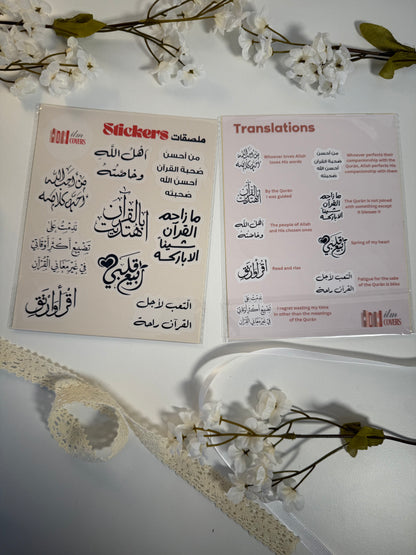 ilm
COVERS
Stickers ملصقات
من أحسن
صحبة القرآن
أحسن الله
صحبته
أهل الله
وخاصته
من أحب الله
أحب كلامه
بالقرآن
اهتديت
ما زاحم
القرآن
شيئا
إلا باركه
ندمت على
تضييع أكثر أوقاتي
في غير معاني القرآن
ربيع قلبي
اقرأ وارتق
التعب لأجل
القرآن راحة
Translations
من أحب الله
أحب كلامه
Whoever loves Allah
loves His words
من أحسن
صحبة القرآن
أحسن الله
صحبته
Whoever perfects their
companionship with the
Quran, Allah perfects His
companionship with them
بالقرآن
اهتديت
By the Quran
I was guided
ما زاحم
القرآن
شيئا
إلا باركه
The Quran is not joined
with something except
it blesses it
أهل الله
وخاصته
The people of Allah
and His chosen ones
ربيع قلبي
Spring of my heart
اقرأ وارتق
Read and rise
التعب لأجل
القرآن راحة
Fatigue for the sake
of the Quran is bliss
ندمت على
تضييع أكثر أوقاتي
في غير معاني القرآن
I regret wasting my time
in other than the meanings
of the Quran
ilm
COVERS